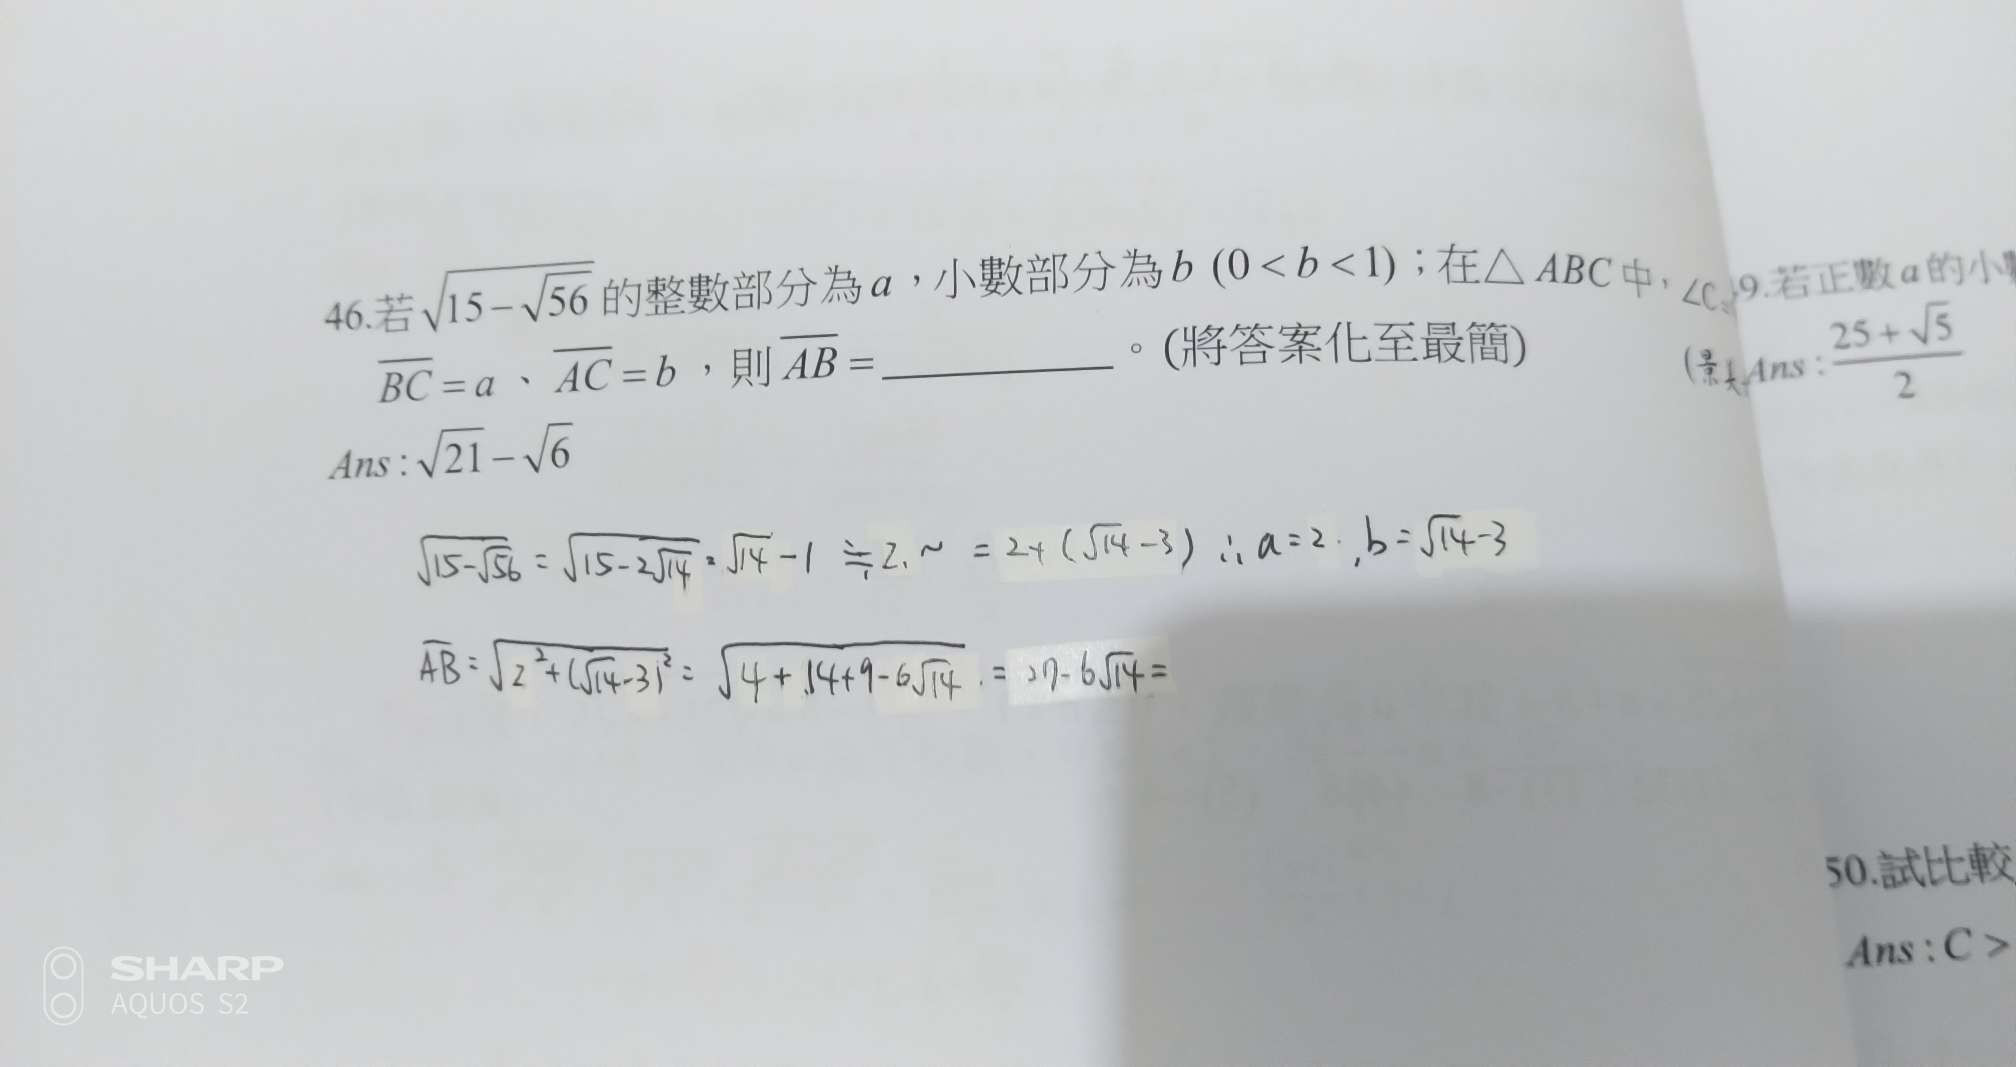 46.若√(15-√56) 的整數部分為a，小數部分為b (0<b<1)；在△ABC中，∠C
BC=a、AC=b，則AB=________。(將答案化至最簡)
Ans:√21-√6
√(15-√56) = √(15-2√14) = √14-1 ≒2.~ = 2+(√14-3) ∴a=2.,b=√14-3
AB=√(2²+(√14-3)²) = √(4+14+9-6√14) = 27-6√14=
9.若正數a的小
Ans:(25+√5)/2
50.試比較
Ans:C>
SHARP
AQUOS S2